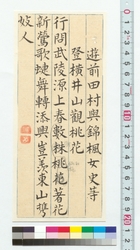 遊前田村與錦楓女史等
登横井山觀桃花
行問武陵源上春數株桃艶著花
新鶯歌蝶舞轉添興豈羨東山攣
妓人